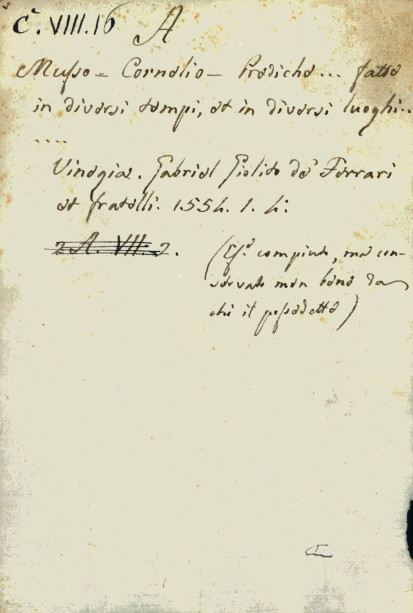 C. VIII. 16 A
Musso = Cornelio = Prediche... fatte
in diversi tempi, et in diversi luoghi..
....
Vinegia. Gabriel Giolito de' Ferrari
et fratelli. 1554. 1. 4:
2 A. VII. 2.
(Es.e compiuto, ma con-
servato men bene da
chi il possedette)